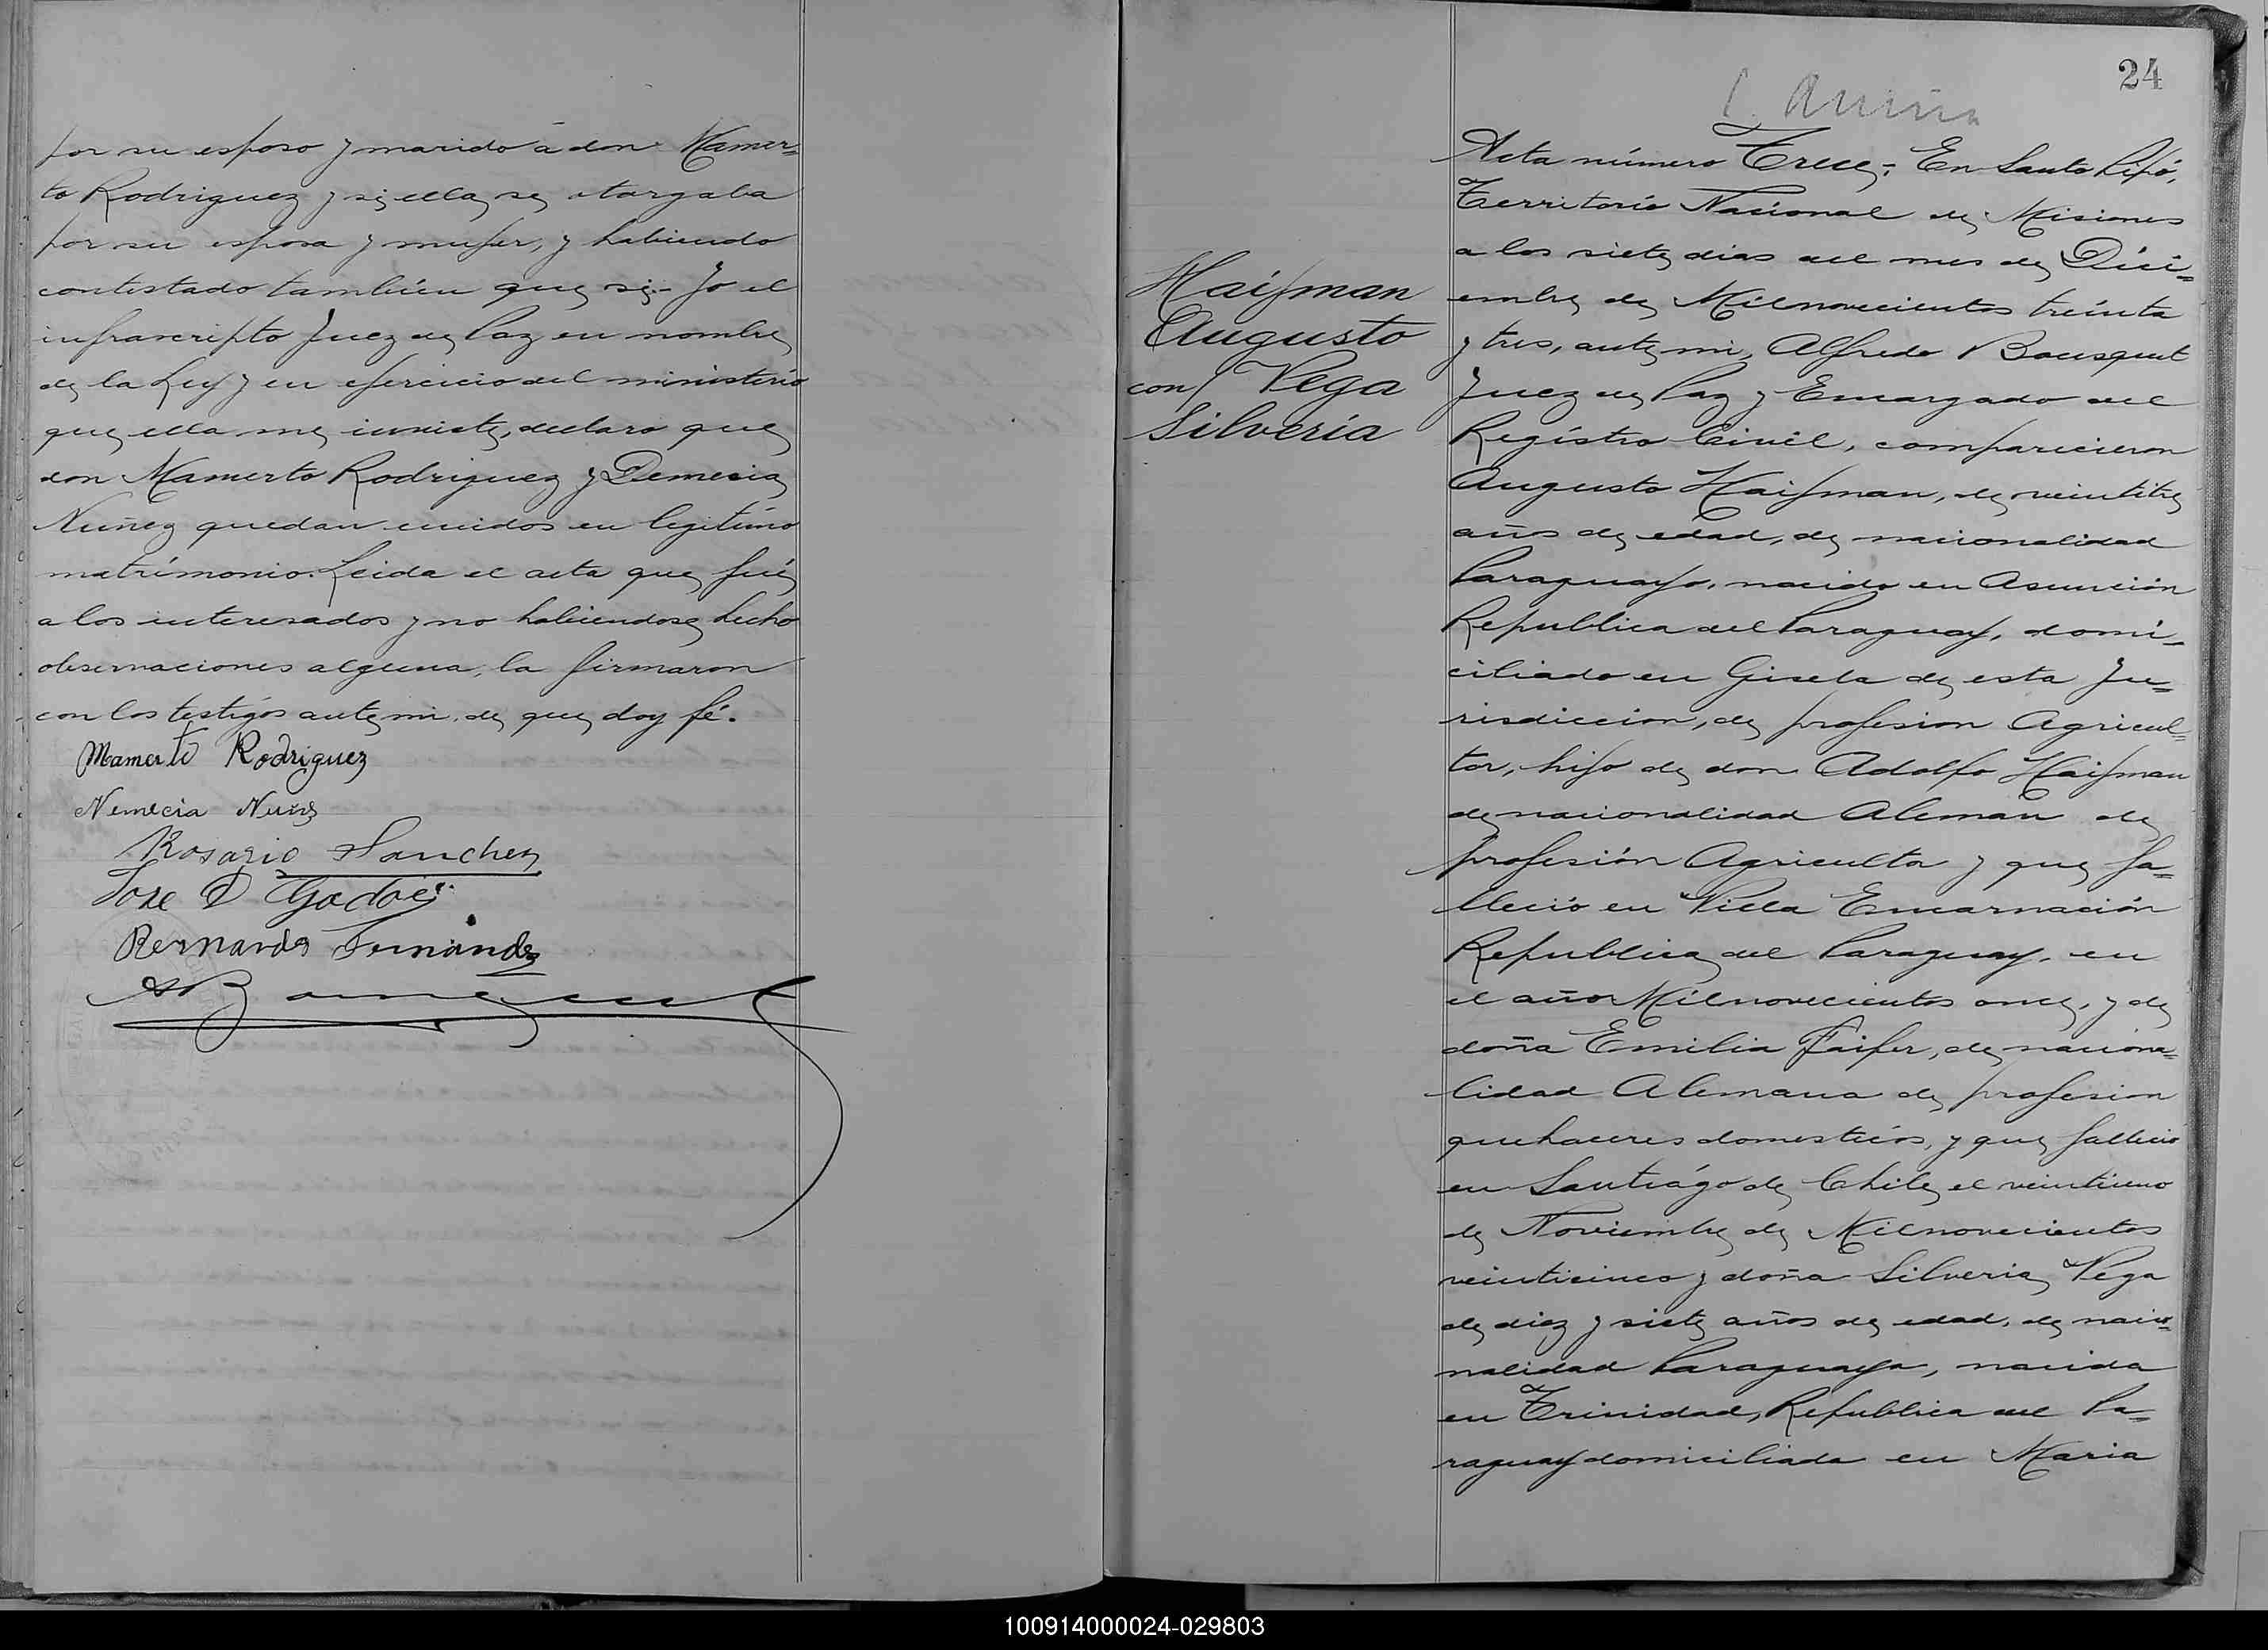 por su esposo y marido á don Mamer=
to Rodriguez y si ella se otorgaba
por su esposa y mujer, y habiendo
contestado también que si.- Yo el
infrascripto Juez de Paz en nombre
de la Ley y en ejercicio del ministerio
que ella me inviste, declaro que
don Mamerto Rodriguez y Demecia
Nuñez quedan unidos en legitimo
matrimonio. Leida el acta que fué
a los interesados y no habiendose hecho
observaciones alguna, la firmaron
con los testigos ante mi, de que doy fé.
Mamerto Rodriguez
Nemecia Nuñs
Rosario Sanchez
Jose D Godoi
Bernardo Fernande
24
Acta número Trece; En Santo Pipó,
Territorio Nacional de Misiones
a los siete dias del mes de Dici=
embre de Milnovecientos treinta
y tres, ante mi, Alfredo Bousquet
Juez de Paz y Encargado del
Registro Civil, comparicieron
Augusto Haifman, de veintitre
años de edad, de nacionalidad
Paraguayo, nacido en Asunción
Republica del Paraguay, domi=
ciliado en Gisela de esta Ju=
risdiccion, de profesion Agricul=
tor, hijo de don Adolfo Haifman
de nacionalidad Aleman de
profesión Agricultor y que fa=
lleció en Villa Encarnación
Republica del Paraguay, en
el año Milnovecientos once, y de
doña Emilia Faifer, de naciona=
lidad Alemana de profesion
quehaceres domesticos, y que fallecio
en Santiágo de Chile el veintiuno
de Noviembre de Milnovecientos
veinticinco y doña Silveria Vega
de diez y siete años de edad, de nacio=
nalidad Paraguaya, nacida
en Trinidad, Republica del Pa=
raguay domiciliada en Maria
Haifman
Augusto
con/ Vega
Silveria
100914000024-029803